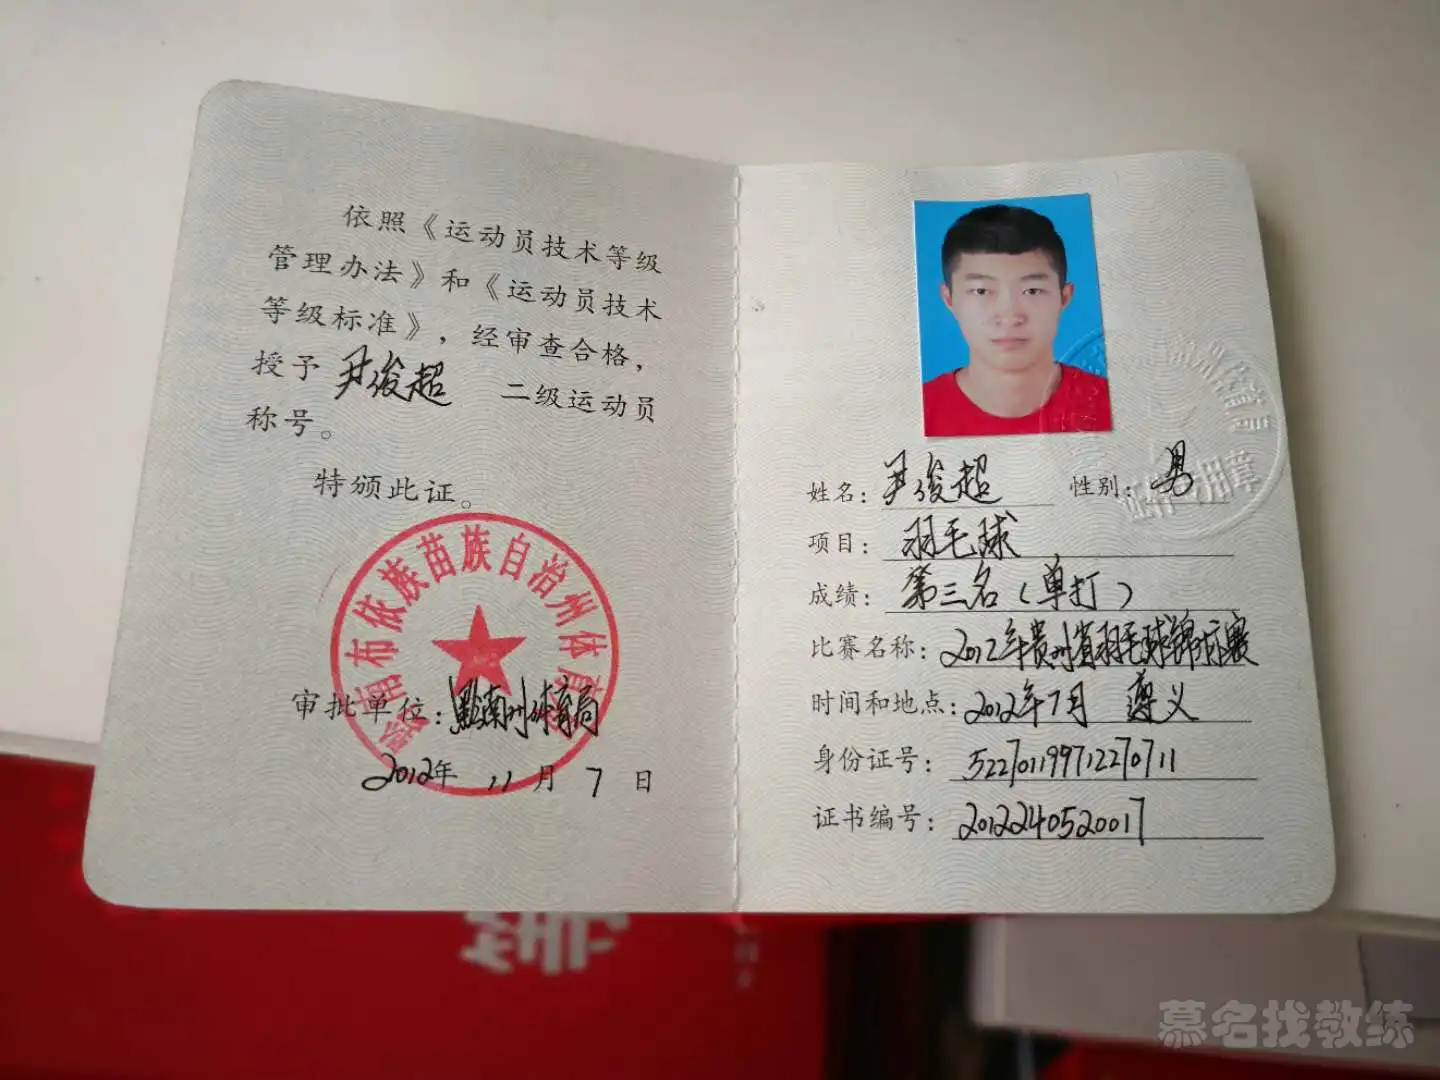 依照《运动员技术等级
管理办法》和《运动员技术
等级标准》，经审查合格，
授予 尹俊超 二级运动员
称号。
特颁此证。
黔南布依族苗族自治州体育局
审批单位：黔南州体育局
2012年 11 月 7 日
姓名：尹俊超 性别：男
项目：羽毛球
成绩：第三名（单打）
比赛名称：2012年贵州省羽毛球锦标赛
时间和地点：2012年7月 遵义
身份证号：522701199712270711
证书编号：2012240520017
慕名找教练